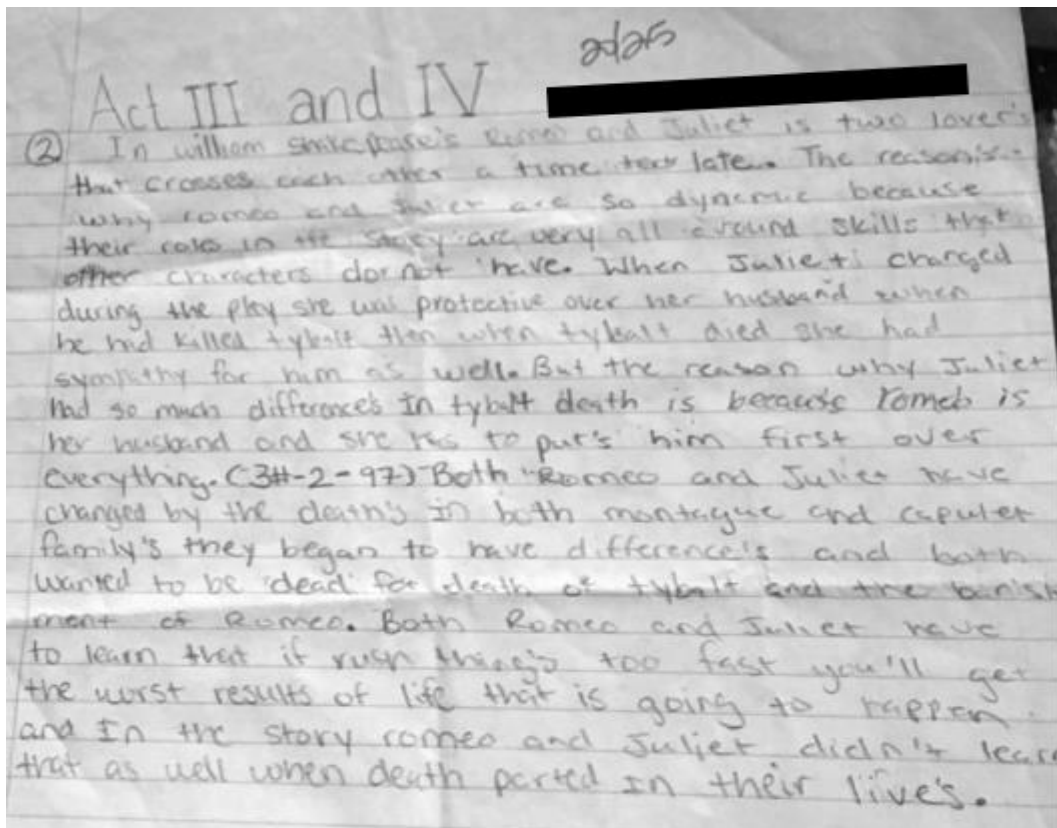 Act III and IV
② In william shakespeare's Romeo and Juliet is two lover's
that crosses each other a time late. The reason is
why romeo and Juliet are so dynamic because
their role in the story are very all around skills that
other characters do not have. When Juliet changed
during the play she was protective over her husband when
he had killed tybalt then when tybalt died she had
sympathy for him as well. But the reason why Juliet
had so much difference's In tybalt death is because romeo is
her husband and she has to put's him first over
everything. (3#-2-97) Both Romeo and Juliet have
changed by the death's in both montague and capulet
family's they began to have difference's and both
wanted to be dead for death of tybalt and the banish
ment of Romeo. Both Romeo and Juliet have
to learn that if rush thing's too fast you'll get
the worst results of life that is going to happen.
and In the story romeo and Juliet didn't learn
that as well when death parted In their live's.